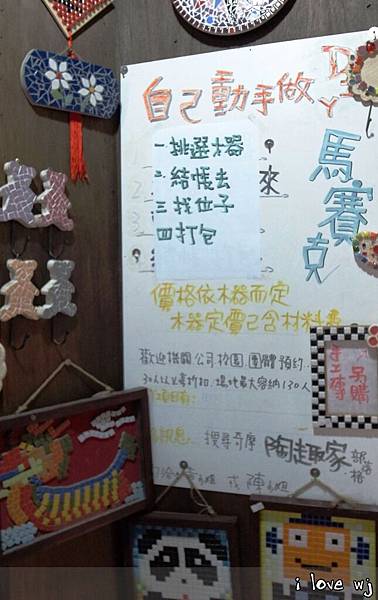 自己動手做
DIY
馬賽克
一 挑選木器
二. 結帳去
三 找位子
四 打包
來
價格依木器而定
木器定價已含材料費
手工磚
另購
歡迎機關.公司.校園.團體預約..
30人以上享折扣.場地最大容納130人
項目有:
訊息:
搜尋奇摩
陶趣家
部落格
或 陳小姐
i love wj